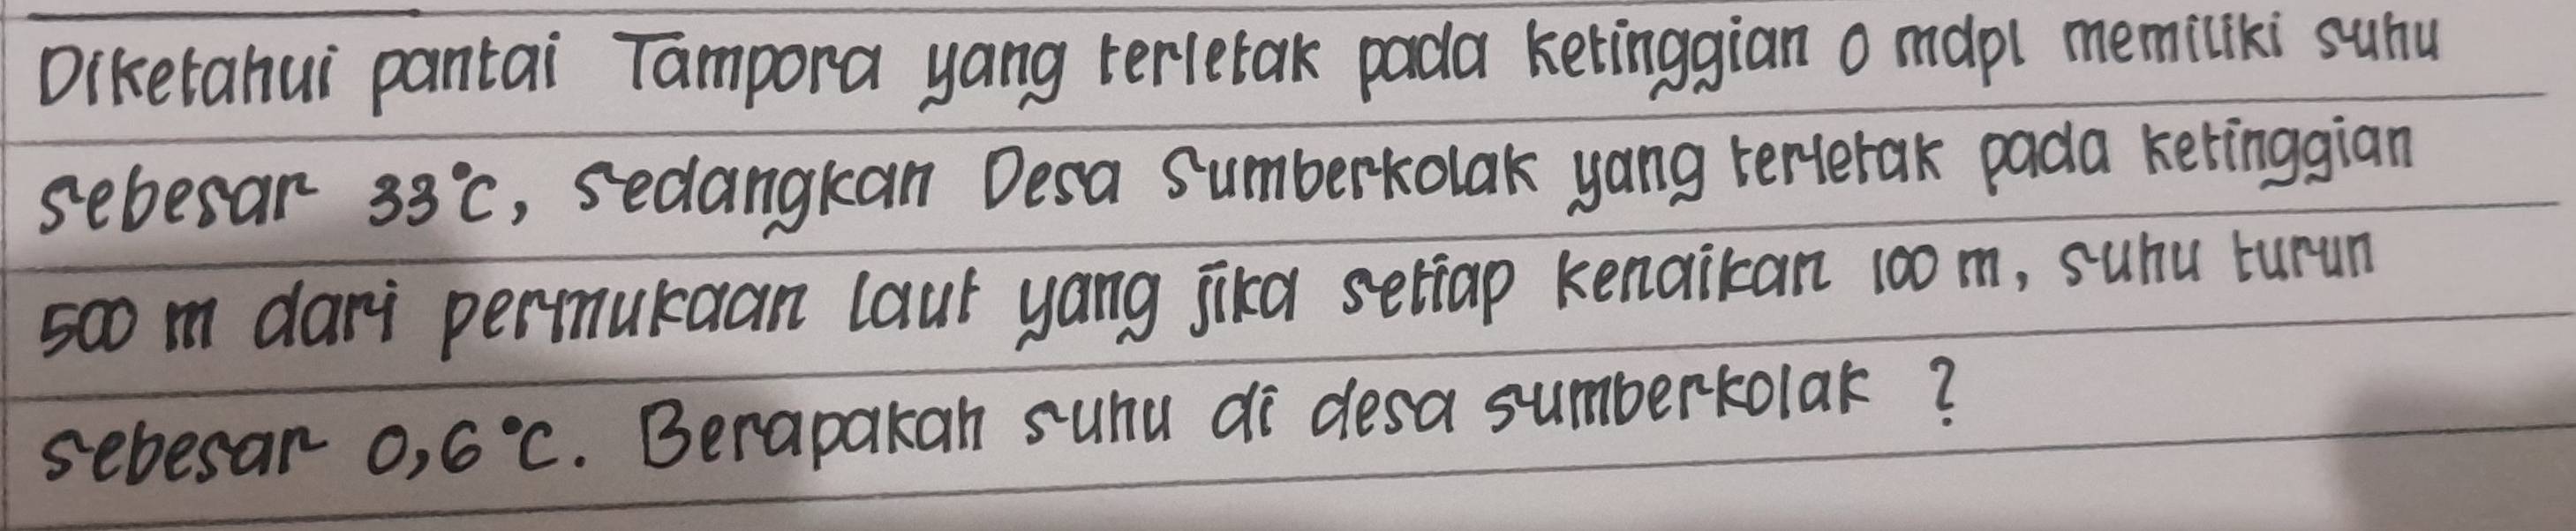 Diketahui pantai Tampora yang terletak pada ketinggian 0 mdpl memiliki suhu
sebesar 33°C, sedangkan Desa Sumberkolak yang terletak pada ketinggian
500 m dari permukaan laut yang jika setiap kenaikan 100 m, suhu turun
sebesar 0,6°C. Berapakah suhu di desa sumberkolak ?